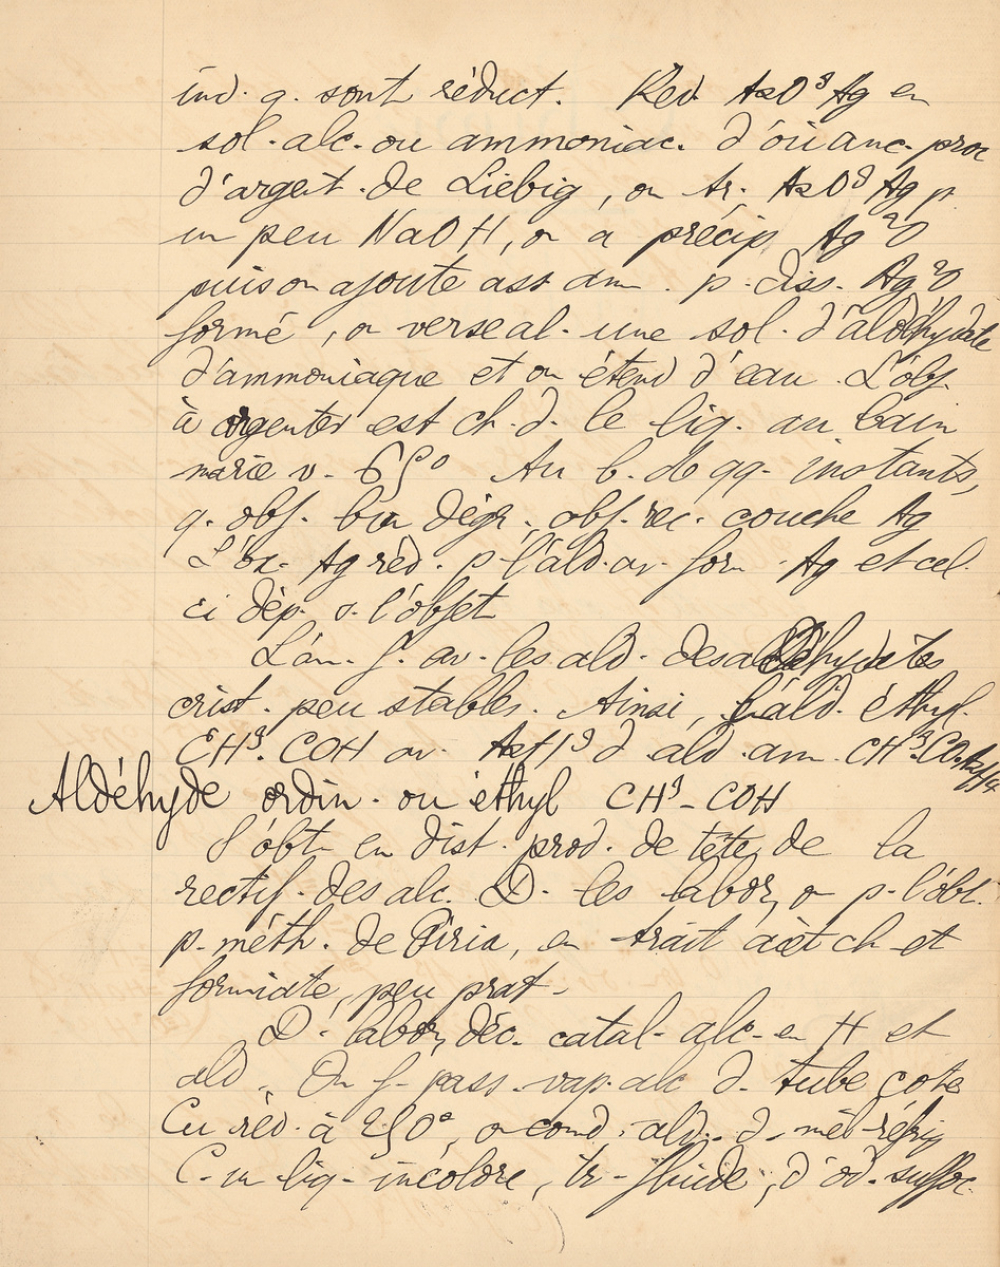 ind. q. sont réduct. Red. AzO³Ag en
sol. alc. ou ammoniac. d'où anc. proc
d'argent. de Liebig, on tr. AzO³Ag p.
un peu NaOH, on a précip. Ag²O
puis on ajoute ass am. p. diss. Ag²O
formé, on verse al. une sol. d'aldéhydate
d'ammoniaque et on étend d'eau. L'obj.
à argenter est ch. d. le liq. au bain
marie v. 65° Au b. de qq. instants,
q. obj. bien dégr., obj. rec. couche Ag
L'ox. Ag réd. p. l'ald. av. form. Ag et cel.
ci dép. s. l'objet
L'am. f. av. les ald. des aldéhydates
crist. peu stables. Ainsi, l'ald. éthyl.
CH³.COH av. AzH³ d ald. am. CH³.CO.AzH4
Aldéhyde ordin. ou éthyl CH³-COH
S'obt. en dist. prod. de tête, de la
rectif. des alc. D. les labor, on p. l'obt.
p. méth. de Piria, en trait acét ch et
formiate, peu prat.
D. labor, déc. catal. alc. en H et
ald. On f. pass. vap. alc d. tube cont
Cu réd. à 250°, on cond. ald. d. mél réfrig
C. un liq. incolore, tr. fluide, d'od. suffoc.